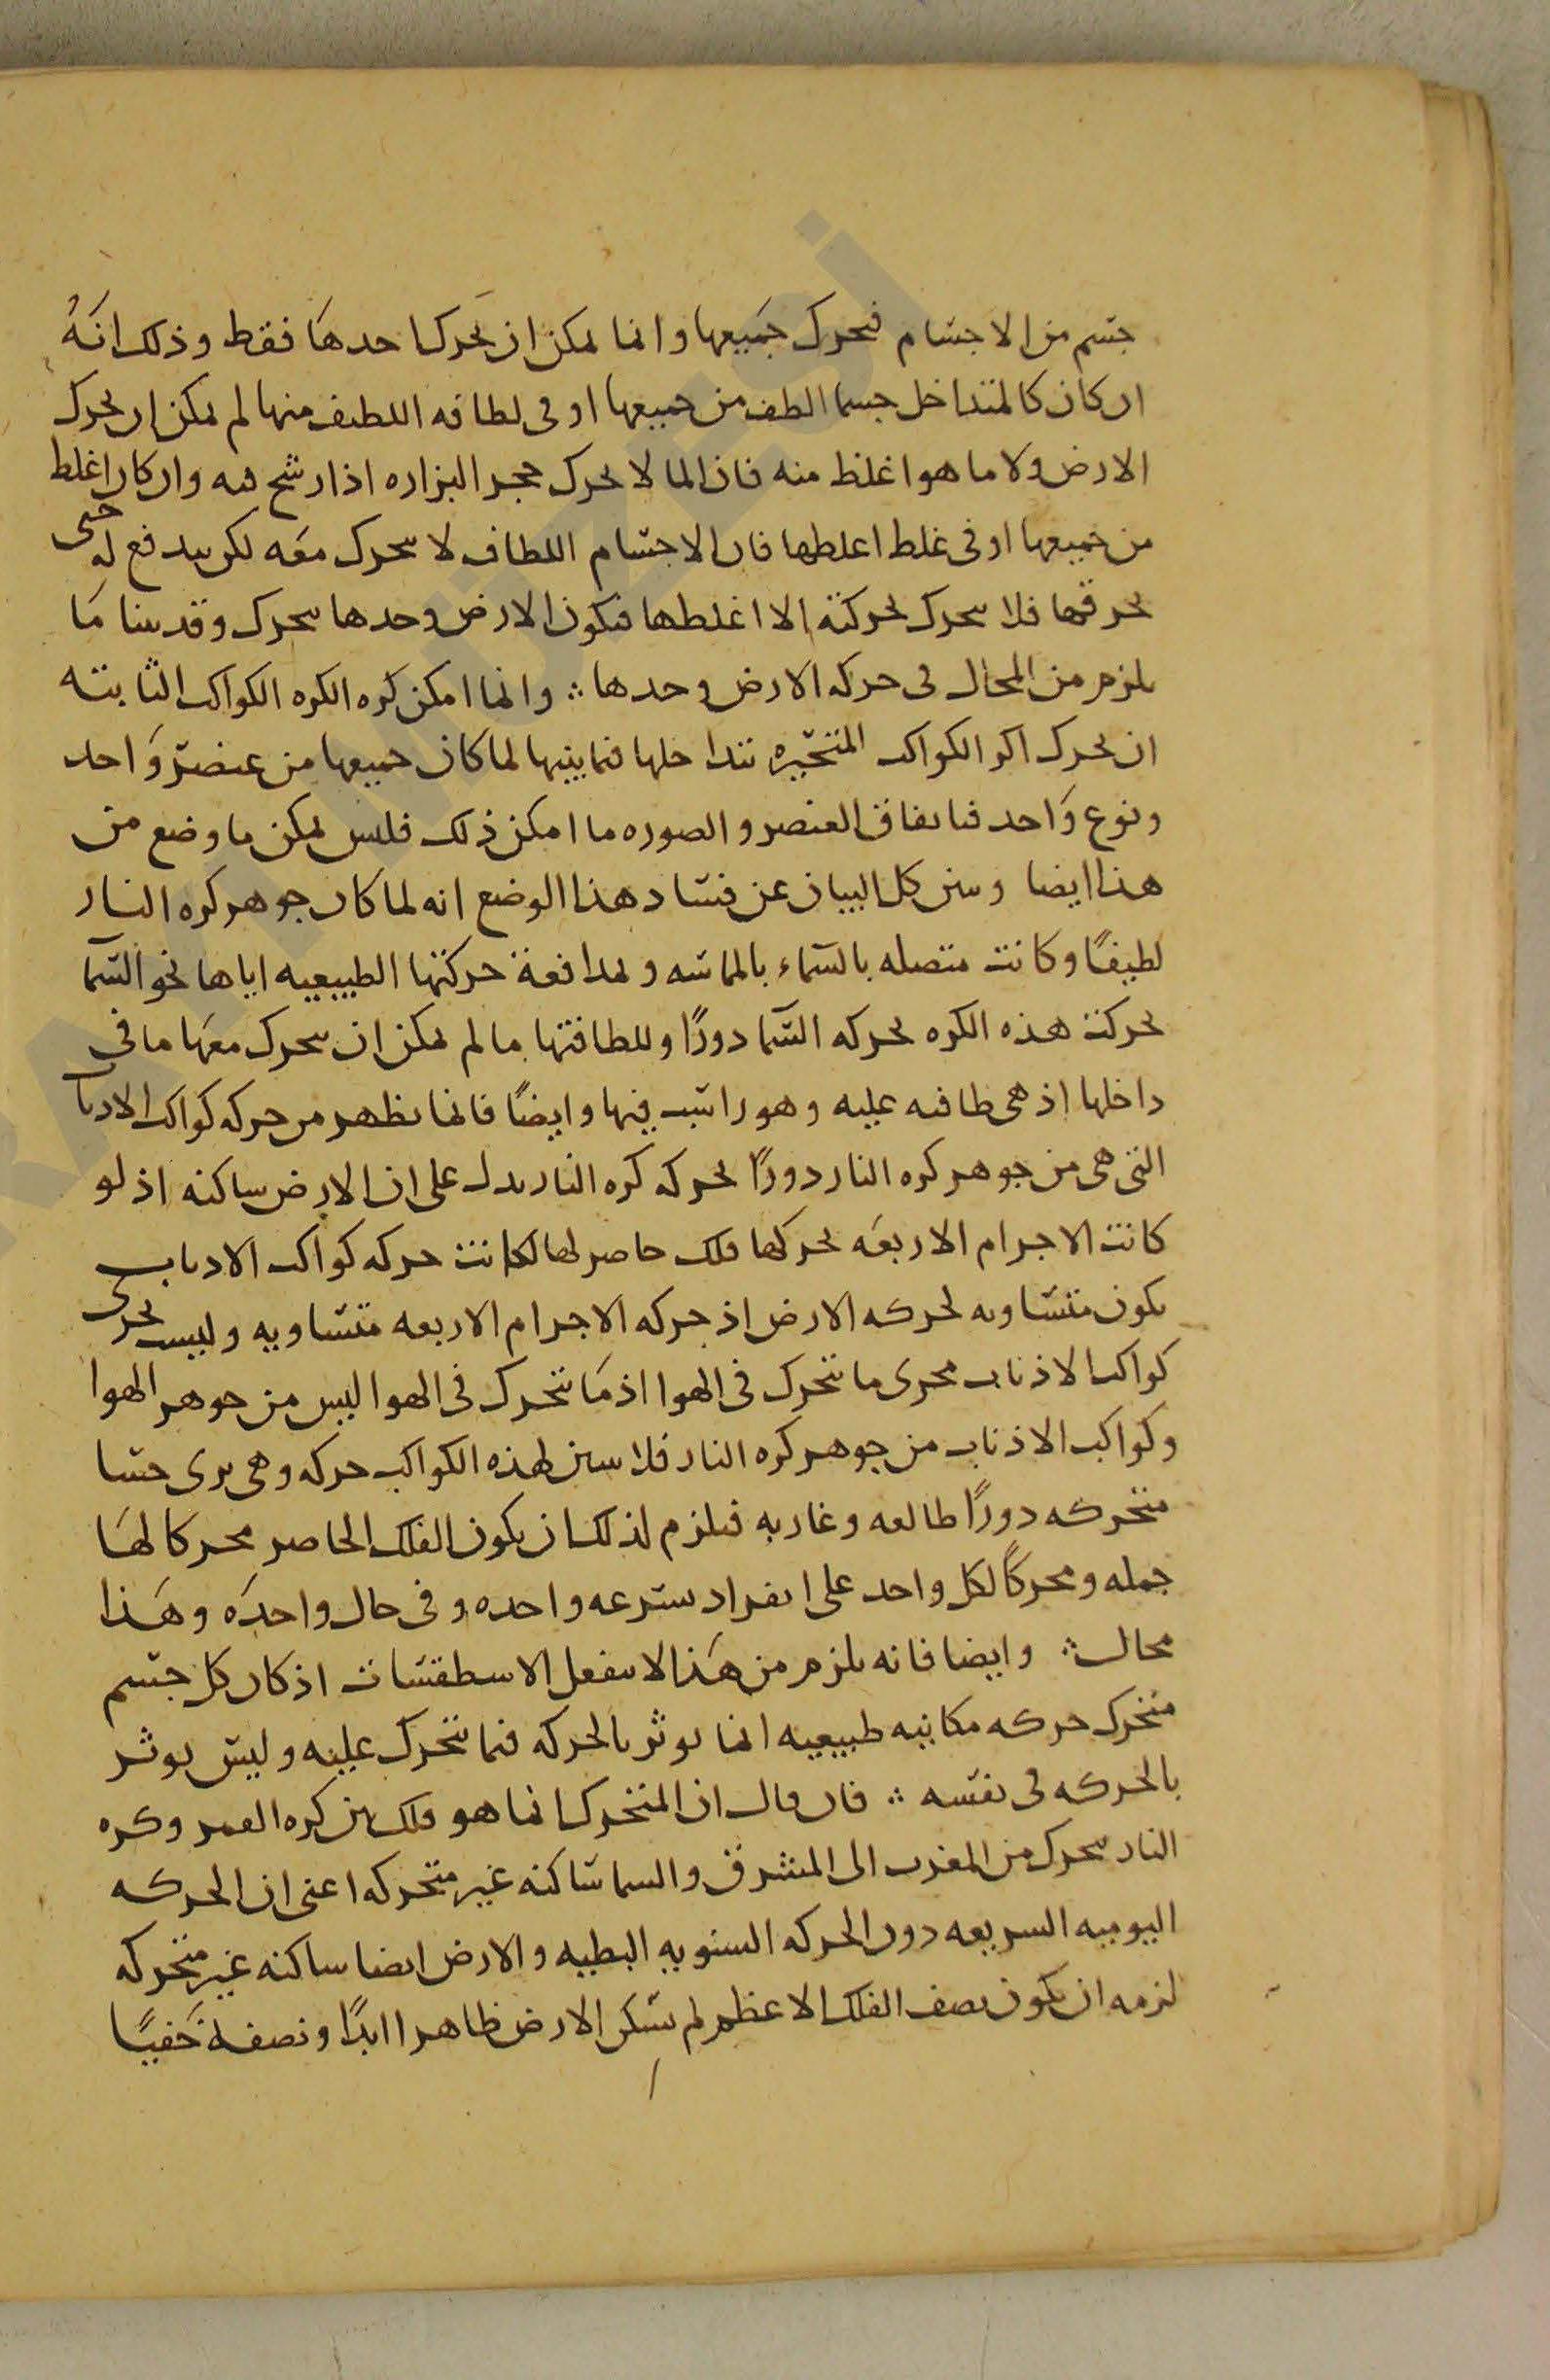 جسم من الاجسام فيحرك جميعها وانما يمكن ان يحرك احدها فقط وذلك انه
ان كان كالمتداخل جسما الطف من جميعها او فى لطافه اللطيف منها لم يمكن ان يحرك
الارض ولا ما هو اغلظ منه فان الما لا يحرك حجر البزاره اذا رشح فيه وان كان اغلظ
من جميعها او فى غلظ اغلظها فان الاجسام اللطاف لا تتحرك معه لكن يندفع له حتى
يخرقها فلا يتحرك بحركته الا اغلظها فتكون الارض وحدها تتحرك وقد بينا ما
يلزم من المحال فى حركه الارض وحدها ؞ وانما امكن كره الكوه الكواكب الثابته
ان يحرك اكر الكواكب المتحيره تتداخلها فيما بينها لما كان جميعها من عنصر واحد
ونوع واحد فباتفاق العنصر والصوره ما امكن ذلك فليس يمكن ما وضع من
هذا ايضا ومن كل البيان عن فساد هذا الوضع انه لما كان جوهر كره النار
لطيفًا وكانت متصله بالسماء بالمماسه ولمدافعة حركتها الطبيعيه اياها نحو السما
تحركت هذه الكره بحركه السما دورًا وللطافتها ما لم يمكن ان يتحرك معها ما فى
داخلها اذ هى طافيه عليه وهو راسب فيها وايضًا فانما يظهر من حركه كواكب الاذناب
التى هى من جوهر كره النار دورًا بحركه كره النار يدل على ان الارض ساكنه اذ لو
كانت الاجرام الاربعه يحركها فلك حاصر لها لكانت حركه كواكب الاذناب
تكون متساويه لحركه الارض اذ حركه الاجرام الاربعه متساويه وليست تجرى
كواكب الاذناب مجرى ما تتحرك فى الهوا اذ ما تتحرك فى الهوا ليس من جوهر الهوا
وكواكب الاذناب من جوهر كره النار فلا تبين لهذه الكواكب حركه وهى ترى حسا
متحركه دورًا طالعه وغاربه فيلزم لذلك ان يكون الفلك الحاصر محركا لها
جمله ومحركًا لكل واحد على انفراد بسرعه واحده وفى حال واحده وهذا
محال ؞ وايضا فانه يلزم من هذا لا تنفعل الاسطقسات اذ كان كل جسم
متحرك حركه مكانيه طبيعيه انما يوثر بالحركه فيما تتحرك عليه وليس يوثر
بالحركه فى نفسه ؞ فان قال ان المتحرك انما هو فلك بين كره القمر وكره
النار تتحرك من المغرب الى المشرق والسما ساكنه غير متحركه اعنى ان الحركه
اليوميه السريعه دون الحركه السنويه البطيه والارض ايضا ساكنه غير متحركه
لزمه ان يكون نصف الفلك الاعظم لم يسكن الارض ظاهرا ابدًا ونصفه خفيًا